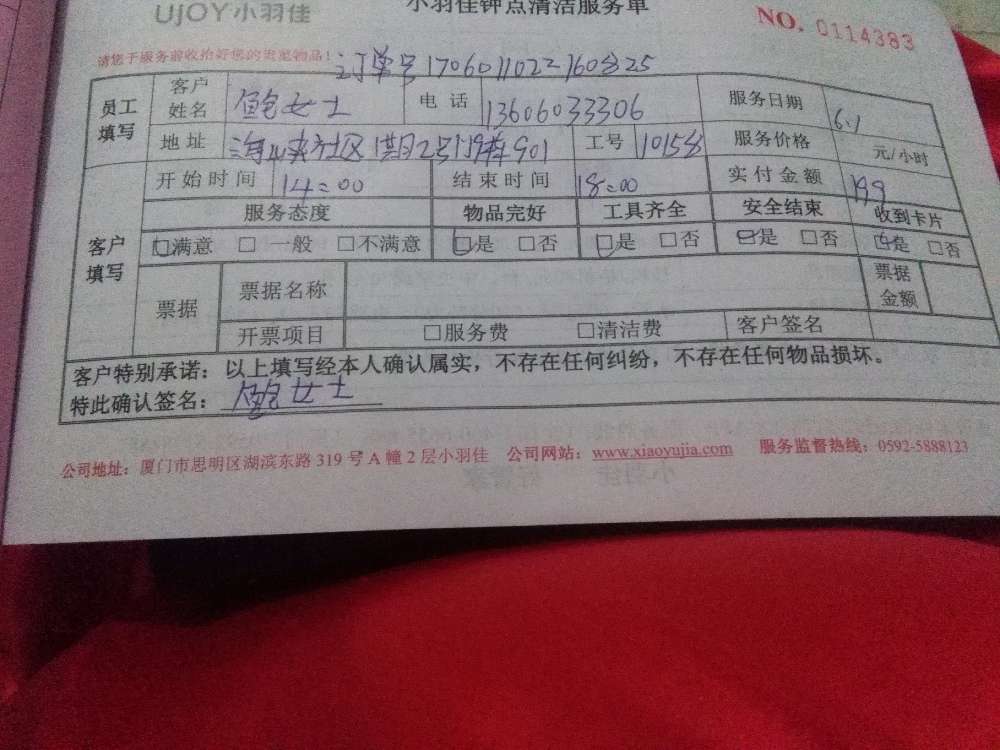 UJOY小羽佳
小羽佳钟点清洁服务单
NO. 0114383
请您于服务前收拾好您的贵重物品!
订单号
员工填写 客户姓名 鲍女士 电话 13606033306 服务日期 6.1
地址 工号 服务价格 元/小时
客户填写 开始时间 14:00 结束时间 18:00 实付金额 199
服务态度 物品完好 工具齐全 安全结束 收到卡片
□满意 □一般 □不满意 □是 □否 □是 □否 □是 □否 □是 □否
票据 票据名称 票据金额
开票项目 □服务费 □清洁费 客户签名
客户特别承诺:以上填写经本人确认属实,不存在任何纠纷,不存在任何物品损坏。
特此确认签名: 鲍女士
公司地址:厦门市思明区湖滨东路 319 号 A 幢 2 层小羽佳 公司网站:www.xiaoyujia.com 服务监督热线:0592-5888123